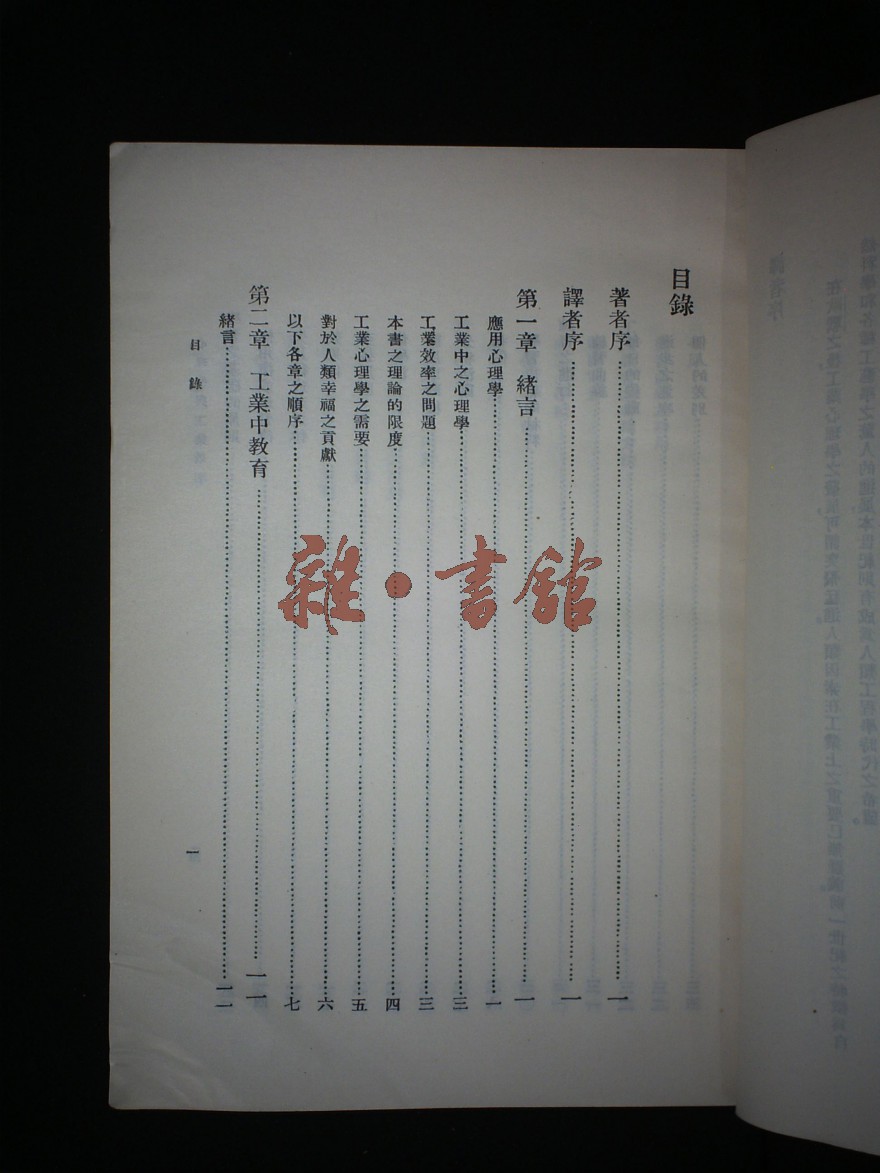 目錄
著者序……一
譯者序……一
第一章 緒言……一
應用心理學……一
工業中之心理學……三
工業效率之問題……三
本書之理論的限度……四
工業心理學之需要……五
對於人類幸福之貢獻……六
以下各章之順序……七
第二章 工業中教育……一一
緒言……一一
目錄
一
雜·書館